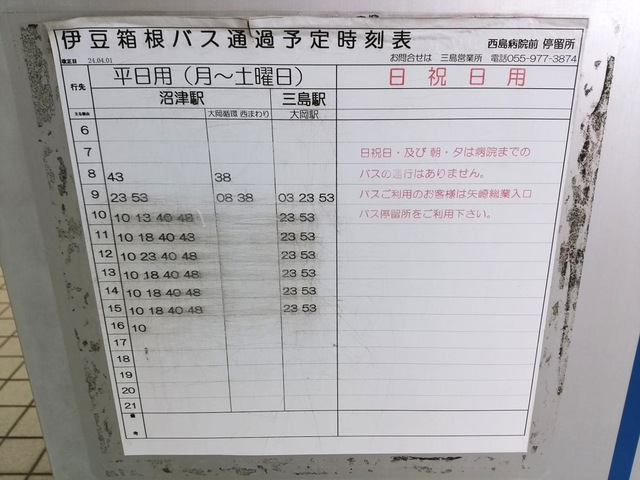 伊豆箱根バス通過予定時刻表
西島病院前 停留所
改正日 24.04.01
お問合せは 三島営業所 電話055-977-3874
行先 平日用（月～土曜日） 日 祝 日 用
沼津駅 三島駅
大岡循環 西まわり 大岡駅
6
7 日祝日・及び 朝・夕は病院までの
8 43 38 バスの運行はありません。
9 23 53 08 38 03 23 53 バスご利用のお客様は矢崎総業入口
10 10 13 40 48 23 53 バス停留所をご利用下さい。
11 10 18 40 43 23 53
12 10 23 40 48 23 53
13 10 18 40 48 23 53
14 10 18 40 48 23 53
15 10 18 40 48 23 53
16 10
17
18
19
20
21
備考